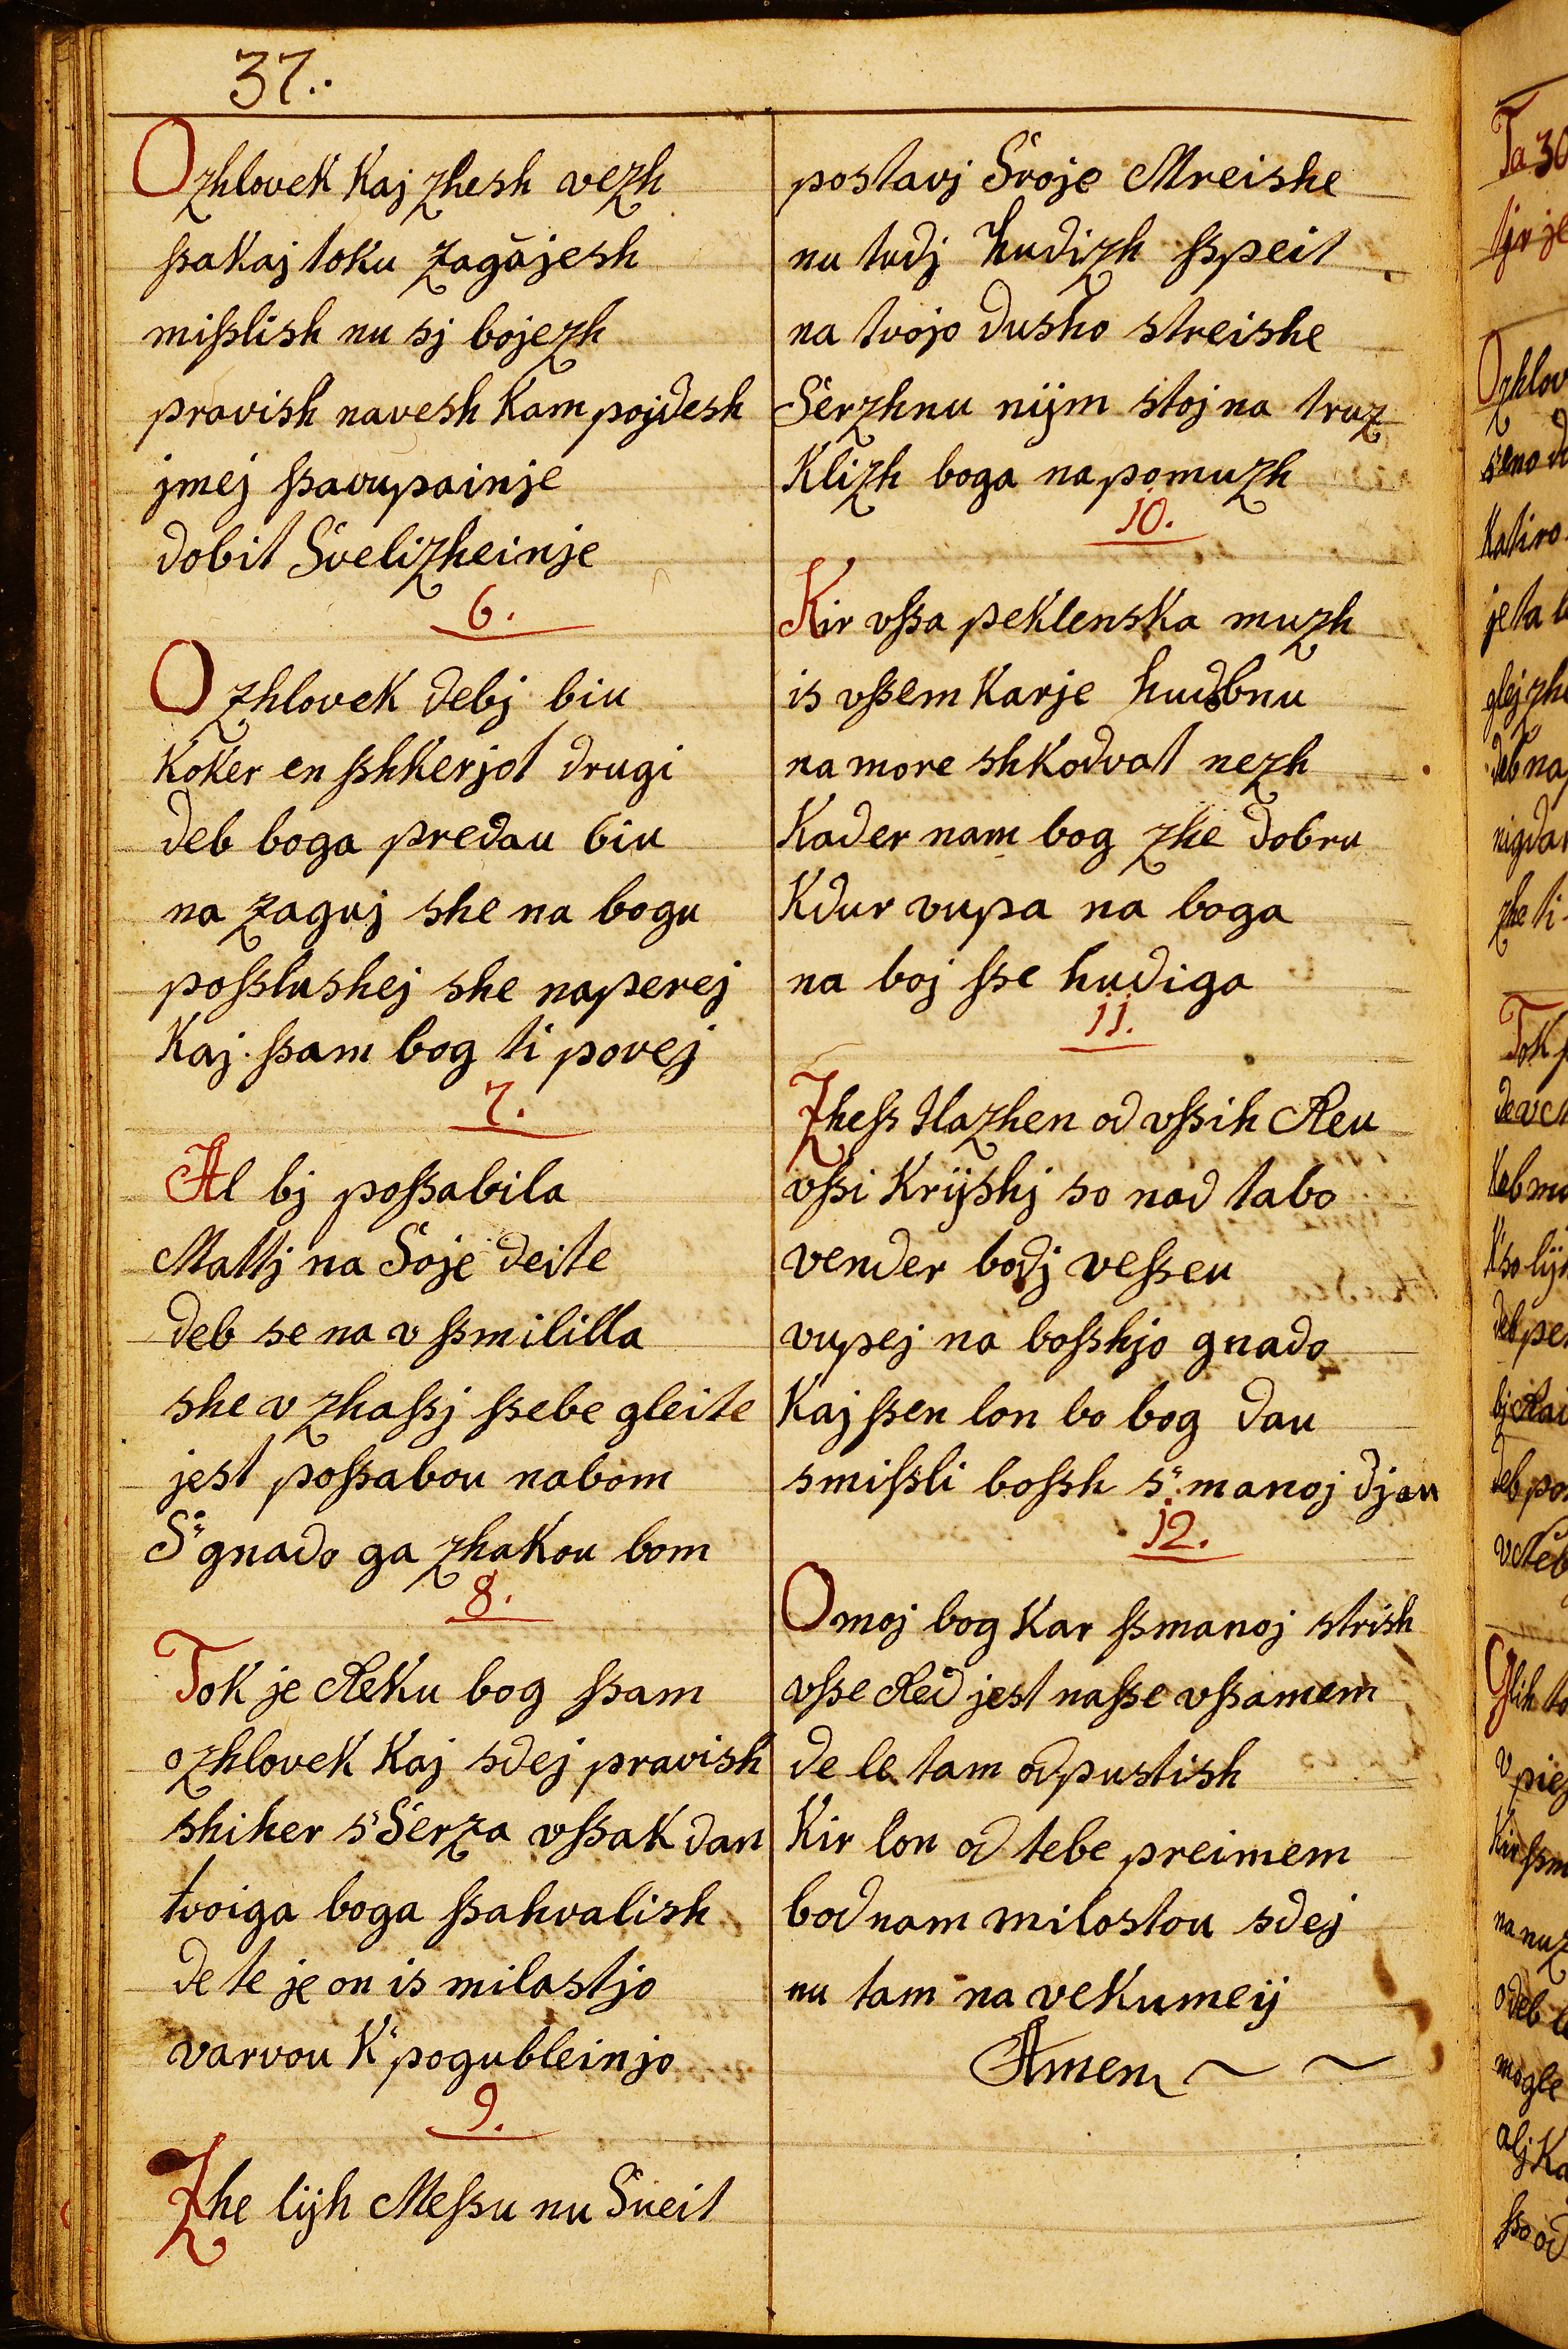 37.
Ozhlovek kaj zhesh vezh
ſsakaj toku zagăjesh
miſslish nu sj bojezh
pravish navesh kam pojdesh
jmej ſsavupainje
dobit Svelizheinje
6.
O zhlovek debj biu
koker en ſshkerjot drugi
deb boga predau biu
na zaguj she na bogu
poſslushej she naperej
kaj ſsam bog ti povej
7.
Al bj poſsabila
Mattj na Soje deite
deb se na v ſsmililla
she v zhaſsj ſsebe gleite
jest poſsabou nabom
S" gnado ga zhakou bom
8.
Tok je Reku bog ſsam
ozhlovek kaj sdej pravish
shiher s" Serza vſsak dan
tvoiga boga ſsahvalish
de te je on is milastjo
varvou K" pogubleinjo
9.
Zhe lijh Meſsu nu Sveit
postavj Svoje Mreishe
nu tudj hudizh ſspeit
na tvojo dusho streishe
Serzhnu nijm stoj na truz
klizh boga na pomuzh
10.
Kir vſsa peklenska muzh
is vſsem karje hudobnu
na more shkodvat nezh
kader nam bog zhe dobru
kdur vupa na boga
na boj ſse hudiga
11.
Zheſs tlazhen od vſsih Reu
vſsi krijshj so nad tabo
vender bodj veſseu
vupej na boſshjo gnado
kaj ſsen lon bo bog dau
smiſsli boſsh s" manoj djau
12.
O moj bog kar ſsmanoj strish
vſse Red jest naſse vſsamem
de le tam odpustish
kir lon od tebe preimem
bod nam milostou sdej
nu tam na vekumeij
Amen ~ ~
Ta 30
Ozhlov